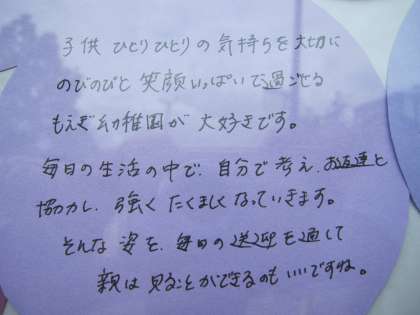 子供 ひとりひとりの気持ちを大切に
のびのびと 笑顔いっぱいで過ごせる
もえぎ幼稚園が 大好きです。
毎日の生活の中で、自分で考え、お友達と
協力し、強く たくましくなっていきます。
そんな 姿を、毎日の送迎を通して
親は 見ることができるのも いいですね。